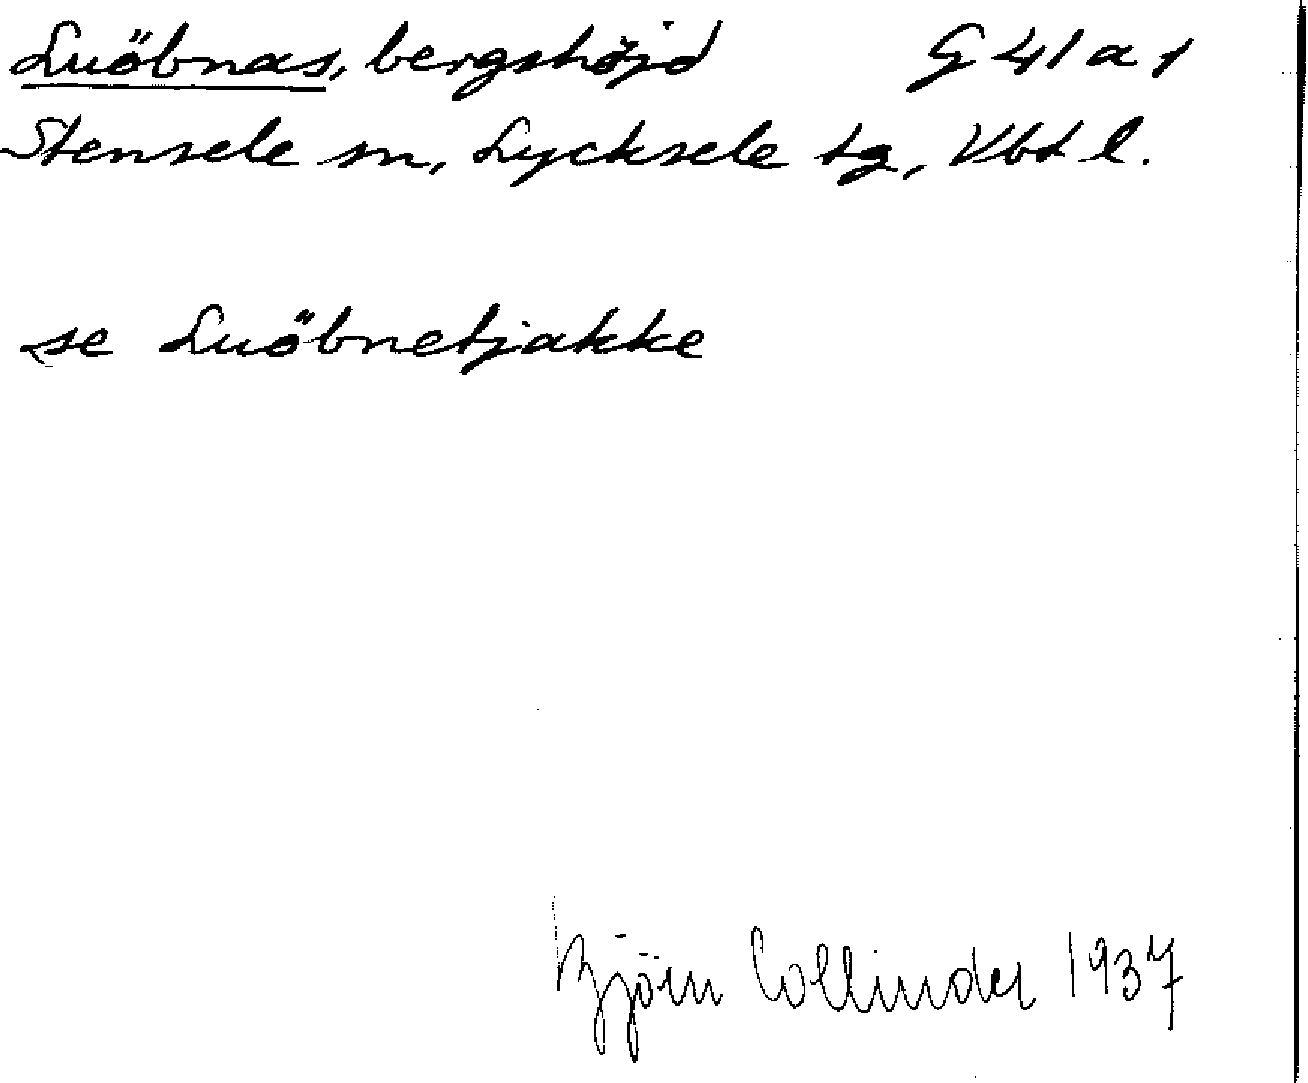 Luöbnas, bergshöjd G 41 a 1
Stensele sn, Lycksele tg, Vbt l.
se Luöbnetjakke
Björn Collinder 1937